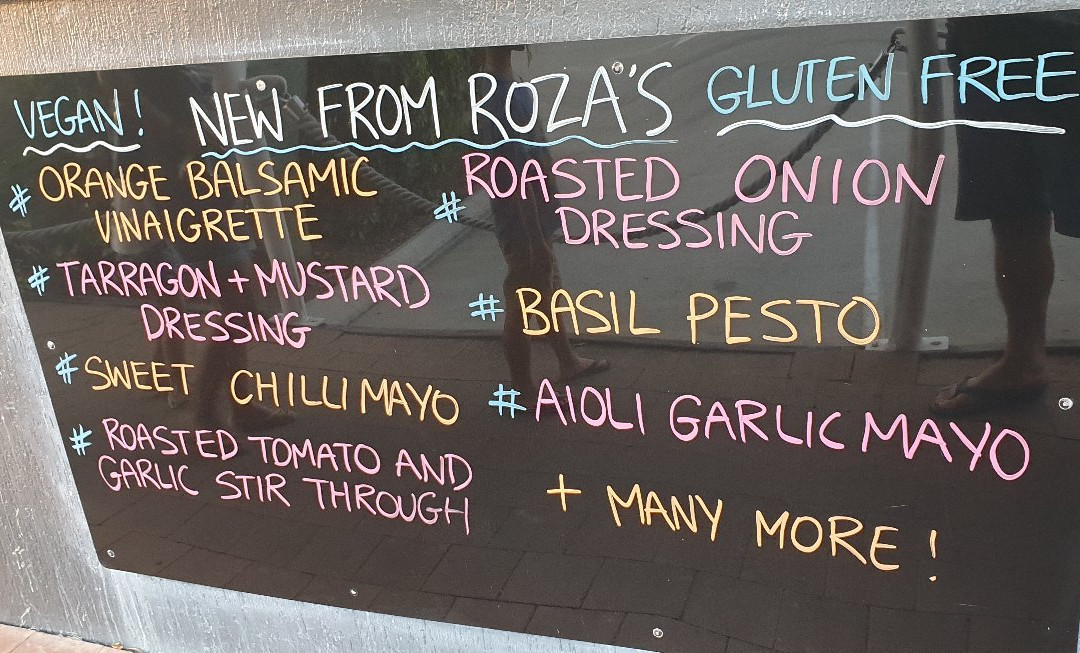 VEGAN! NEW FROM ROZA'S GLUTEN FREE
# ORANGE BALSAMIC
VINAIGRETTE
# TARRAGON + MUSTARD
DRESSING
# SWEET CHILLI MAYO
# ROASTED TOMATO AND
GARLIC STIR THROUGH
# ROASTED ONION
DRESSING
# BASIL PESTO
# AIOLI GARLIC MAYO
+ MANY MORE!